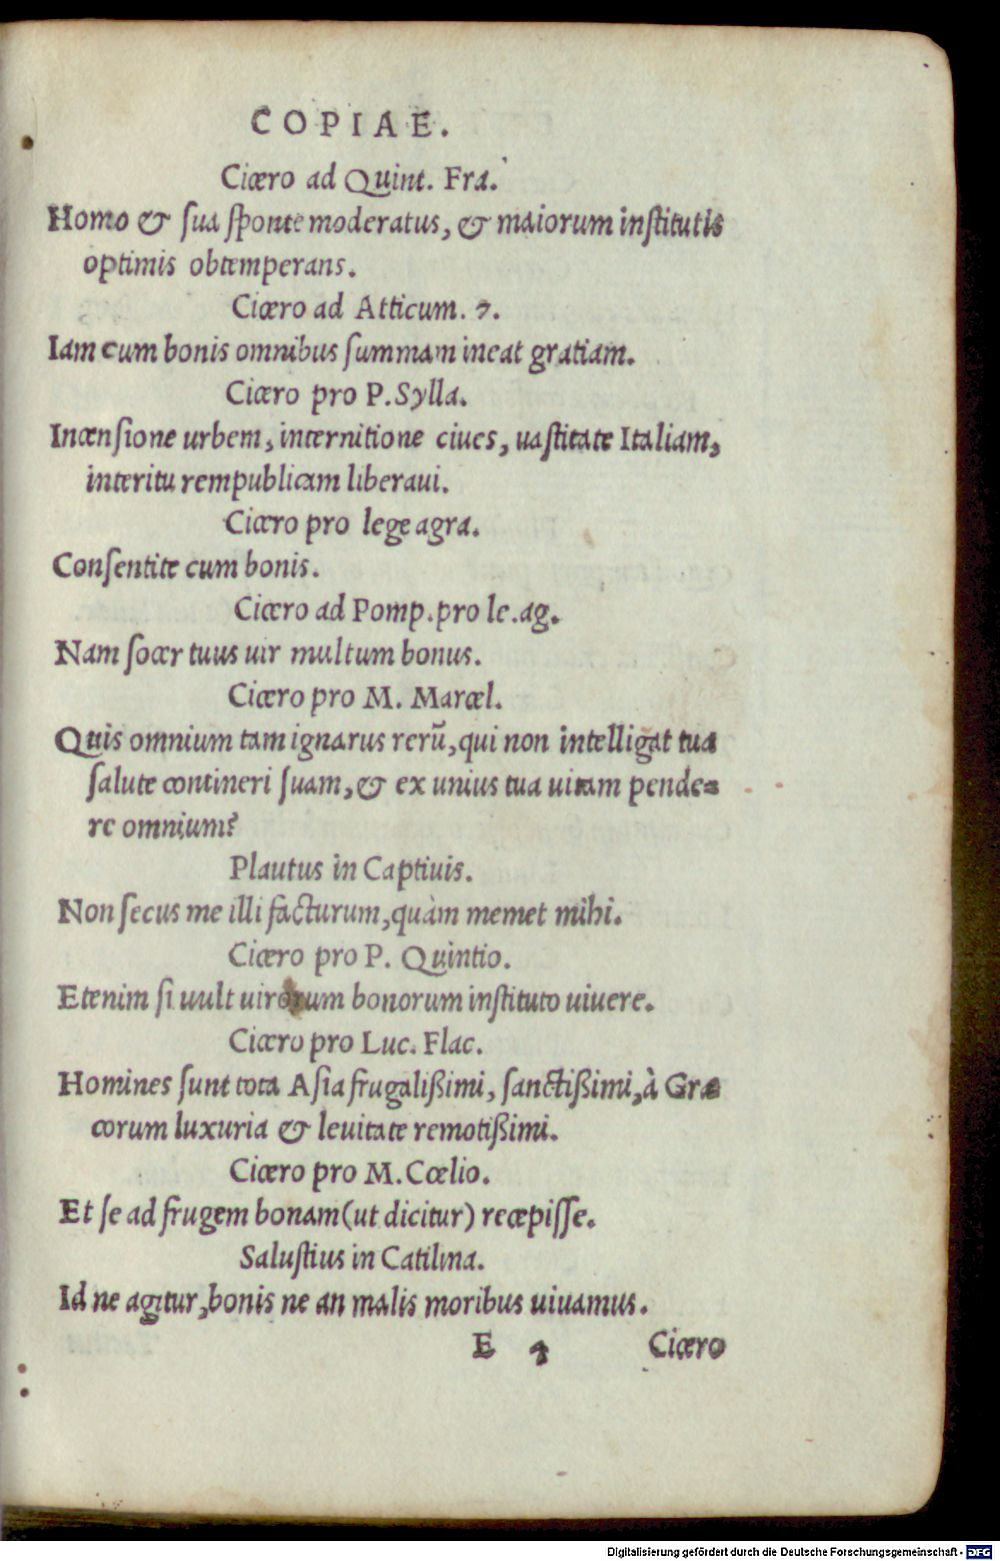 COPIAE.
Cicero ad Quint. Fra.
Homo & ſua ſponte moderatus, & maiorum inſtitutis
optimis obtemperans.
Cicero ad Atticum. 7.
Iam cum bonis omnibus ſummam ineat gratiam.
Cicero pro P. Sylla.
Incenſione urbem, internitione ciues, uaſtitate Italiam,
interitu rempublicam liberaui.
Cicero pro lege agra.
Conſentite cum bonis.
Cicero ad Pomp. pro le. ag.
Nam ſocer tuus uir multum bonus.
Cicero pro M. Marcel.
Quis omnium tam ignarus rerū, qui non intelligat tua
ſalute contineri ſuam, & ex unius tua uitam pende=
re omnium?
Plautus in Captiuis.
Non ſecus me illi facturum, quàm memet mihi.
Cicero pro P. Quintio.
Etenim ſi uult uirorum bonorum inſtituto uiuere.
Cicero pro Luc. Flac.
Homines ſunt tota Aſia frugalißimi, ſanctißimi, à Græ
corum luxuria & leuitate remotißimi.
Cicero pro M. Cœlio.
Et ſe ad frugem bonam (ut dicitur) recepiſſe.
Saluſtius in Catilina.
Id ne agitur, bonis ne an malis moribus uiuamus.
E 4 Cicero
Digitalisierung gefördert durch die Deutsche Forschungsgemeinschaft - DFG